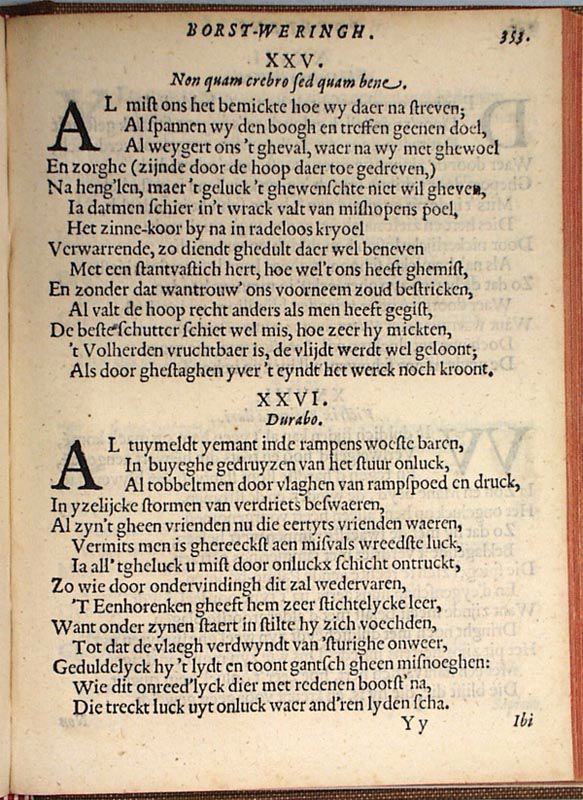 BORST-WERINGH. 353.
XXV.
Non quam crebro sed quam bene.
AL mist ons het bemickte hoe wy daer na streven;
Al spannen wy den boogh en treffen geenen doel,
Al weygert ons 't gheval, waer na wy met ghewoel
En zorghe (zijnde door de hoop daer toe gedreven,)
Na heng'len, maer 't geluck 't ghewenschte niet wil gheven,
Ia datmen schier in't wrack valt van mishopens poel,
Het zinne-koor by na in radeloos kryoel
Verwarrende, zo diendt ghedult daer wel beneven
Met een stantvastich hert, hoe wel't ons heeft ghemist,
En zonder dat wantrouw' ons voorneem zoud bestricken,
Al valt de hoop recht anders als men heeft gegist,
De beste schutter schiet wel mis, hoe zeer hy mickten,
't Volherden vruchtbaer is, de vlijdt werdt wel geloont;
Als door ghestaghen yver 't eyndt het werck noch kroont.
XXVI.
Durabo.
AL tuymeldt yemant inde rampens woeste baren,
In buyeghe gedruyzen van het stuur onluck,
Al tobbeltmen door vlaghen van rampspoed en druck,
In yzelijcke stormen van verdriets beswaeren,
Al zyn't gheen vrienden nu die eertyts vrienden waeren,
Vermits men is ghereeckst aen misvals wreedste luck,
Ia all' tgheluck u mist door onluckx schicht ontruckt,
Zo wie door ondervindingh dit zal wedervaren,
'T Eenhorenken gheeft hem zeer stichtelycke leer,
Want onder zynen staert in stilte hy zich voechden,
Tot dat de vlaegh verdwyndt van 'sturighe onweer,
Geduldelyck hy 't lydt en toont gantsch gheen misnoeghen:
Wie dit onreed'lyck dier met redenen bootst' na,
Die treckt luck uyt onluck waer and'ren lyden scha.
Yy Ibi